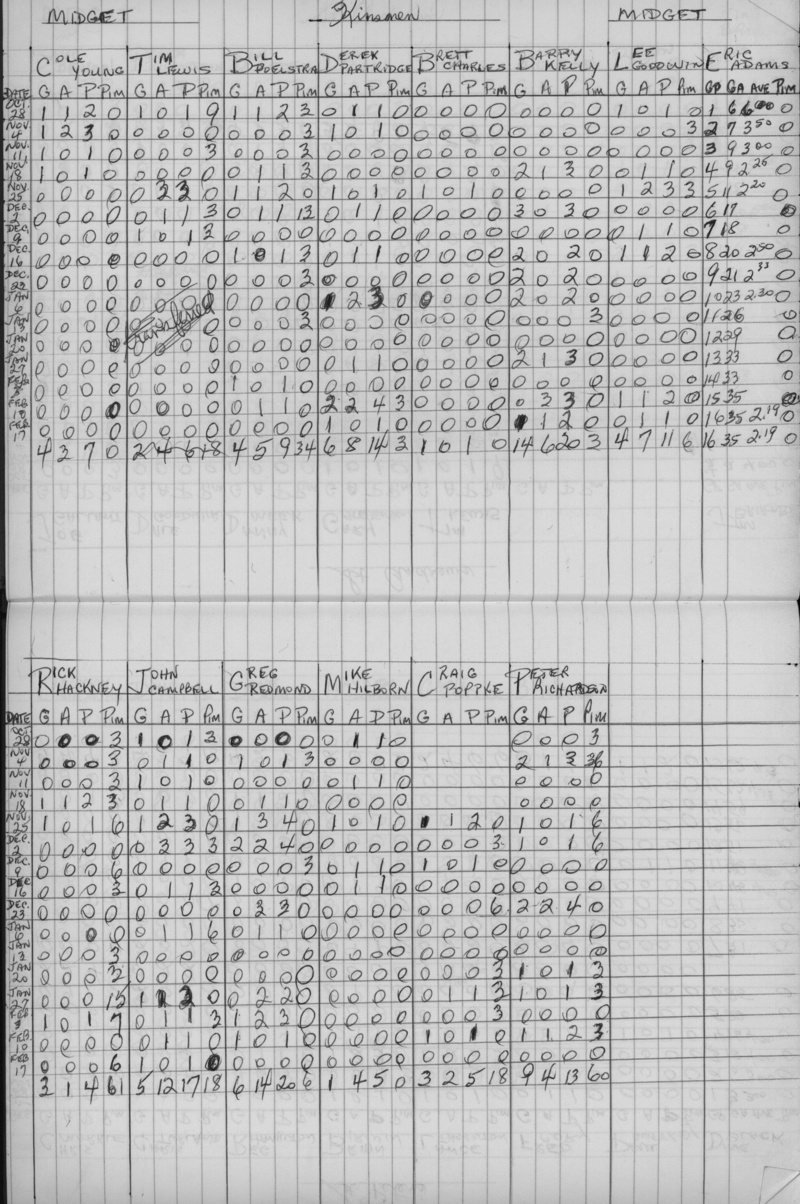 MIDGET Kinsmen MIDGET
COLE YOUNG TIM LEWIS BILL POELSTRA DEREK PARTRIDGE BRETT CHARLES BARRY KELLY LEE GOODWIN ERIC ADAMS
DATE G A P Pim G A P Pim G A P Pim G A P Pim G A P Pim G A P Pim G A P Pim GP GA AVE Pim
OCT. 28 1 1 2 0 1 0 1 9 1 1 2 3 0 1 1 0 0 0 0 0 0 0 0 0 1 0 1 0 1 6 6.00 0
NOV. 4 1 2 3 0 0 0 0 0 0 0 0 3 1 0 1 0 0 0 0 0 0 0 0 0 0 0 0 3 2 7 3.50 0
NOV. 11 1 0 1 0 0 0 0 3 0 0 0 3 0 0 0 0 0 0 0 0 0 0 0 0 0 0 0 0 3 9 3.00 0
NOV 18 1 0 1 0 0 0 0 0 0 1 1 3 0 0 0 0 0 0 0 0 2 1 3 0 0 1 1 0 4 9 2.25 0
NOV. 25 0 0 0 0 0 2 2 0 1 1 2 0 1 0 1 0 1 0 1 0 0 0 0 0 1 2 3 3 5 11 2.20 0
DEC. 2 0 0 0 0 0 1 1 3 0 1 1 12 0 1 1 0 0 0 0 0 3 0 3 0 0 0 0 0 6 17 0
DEC. 9 0 0 0 0 1 0 1 3 0 0 0 0 0 0 0 0 0 0 0 0 0 0 0 0 0 1 1 0 7 18 0
DEC. 16 0 0 0 0 0 0 0 0 1 0 1 3 0 1 1 0 0 0 0 0 2 0 2 0 1 1 2 0 8 20 2.50 0
DEC. 23 0 0 0 0 0 0 0 0 0 0 0 3 0 0 0 0 0 0 0 0 2 0 2 0 0 0 0 0 9 21 2.33 0
JAN 6 0 0 0 0 0 0 0 0 0 0 0 0 1 2 3 0 0 0 0 0 2 0 2 0 0 0 0 0 10 23 2.30 0
JAN 13 0 0 0 0 0 0 0 3 0 0 0 0 0 0 0 0 0 0 0 3 0 0 0 0 11 26 0
JAN 20 0 0 0 0 0 0 0 0 0 0 0 0 0 0 0 0 0 0 0 0 0 0 0 0 0 0 0 0 12 29 0
JAN 27 0 0 0 0 0 0 0 0 0 0 0 0 0 1 1 0 0 0 0 0 2 1 3 0 0 0 0 0 13 33 0
FEB. 3 0 0 0 0 0 0 0 0 1 0 1 0 0 0 0 0 0 0 0 0 0 0 0 0 0 0 0 0 14 33 0
FEB 10 0 0 0 0 0 0 0 0 0 1 1 0 2 2 4 3 0 0 0 0 0 3 3 0 1 1 2 0 15 35 0
FEB. 17 0 0 0 0 0 0 0 0 0 0 0 0 1 0 1 0 0 0 0 0 1 1 2 0 0 1 1 0 16 35 2.19 0
4 3 7 0 2 4 6 18 4 5 9 34 6 8 14 3 1 0 1 0 14 6 20 3 4 7 11 6 16 35 2.19 0
RICK HACKNEY JOHN CAMPBELL GREG REDMOND MIKE HILBORN CRAIG POPPKE PETER RICHARDSON
DATE G A P Pim G A P Pim G A P Pim G A P Pim G A P Pim G A P Pim
OCT 28 0 0 0 3 1 0 1 3 0 0 0 0 0 1 1 0 0 0 0 3
NOV 4 0 0 0 3 0 1 1 0 1 0 1 3 0 0 0 0 2 1 3 36
NOV 11 0 0 0 3 1 0 1 0 0 0 0 0 0 1 1 0 0 0 0 0
NOV. 18 1 1 2 3 0 1 1 0 0 1 1 0 0 0 0 0 0 0 0 0
NOV. 25 1 0 1 6 1 2 3 0 1 3 4 0 1 0 1 0 1 1 2 0 1 0 1 6
DEC. 2 0 0 0 0 0 3 3 3 2 2 4 0 0 0 0 0 0 0 0 3 1 0 1 6
DEC. 9 0 0 0 6 0 0 0 0 0 0 0 3 0 1 1 0 1 0 1 0 0 0 0 0
DEC 16 0 0 0 3 0 1 1 3 0 0 0 0 0 1 1 0 0 0 0 0 0 0 0 0
DEC. 23 0 0 0 0 0 0 0 0 0 3 3 0 0 0 0 0 0 0 0 6 2 2 4 0
JAN 6 0 0 0 0 0 1 1 6 0 1 1 0 0 0 0 0 0 0 0 0 0 0 0 0
JAN 13 0 0 0 3 0 0 0 0 0 0 0 0 0 0 0 0 0 0 0 0 0 0 0 0
JAN 20 0 0 0 3 0 0 0 0 0 0 0 0 0 0 0 0 0 0 0 3 1 0 1 3
JAN 27 0 0 0 15 1 1 2 0 0 2 2 0 0 0 0 0 0 1 1 3 1 0 1 3
FEB 3 1 0 1 7 0 1 1 3 1 2 3 0 0 0 0 0 0 0 0 3 0 0 0 0
FEB. 10 0 0 0 0 0 1 1 0 1 0 1 0 0 0 0 0 1 0 1 0 1 1 2 3
FEB 17 0 0 0 6 1 0 1 0 0 0 0 0 0 0 0 0 0 0 0 0 0 0 0 0
3 1 4 61 5 12 17 18 6 14 20 6 1 4 5 0 3 2 5 18 9 4 13 60